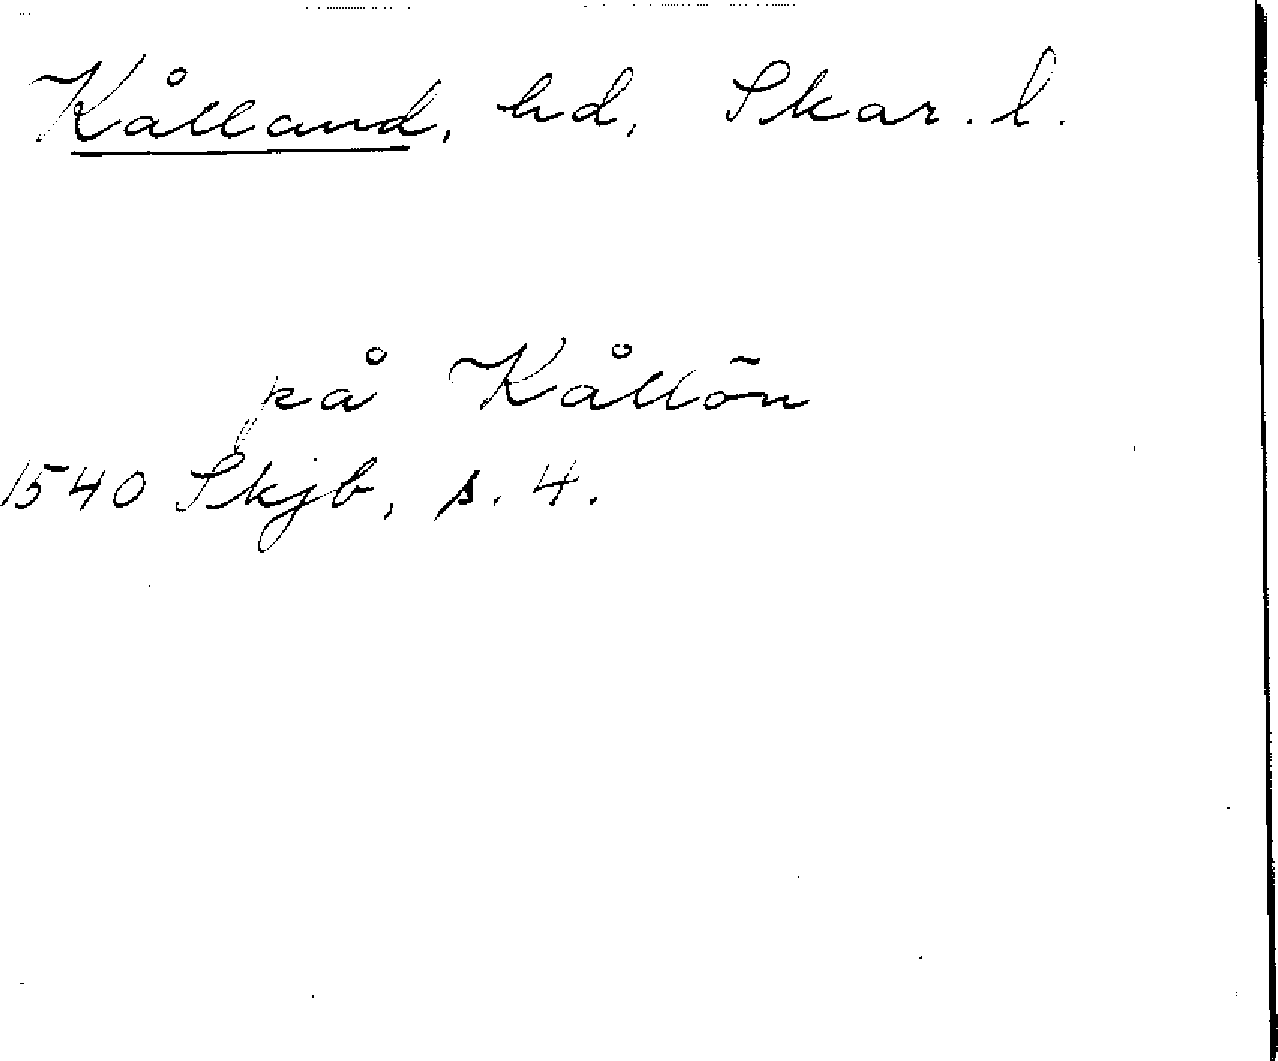 Kålland, hd, Skar. l.
på Kållön
1540 Skjb, s. 4.